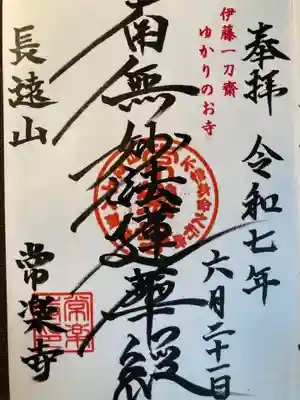 奉拝
令和七年
六月二十一日
伊藤一刀斎
ゆかりのお寺
南無妙法蓮華経
長遠山
常楽寺